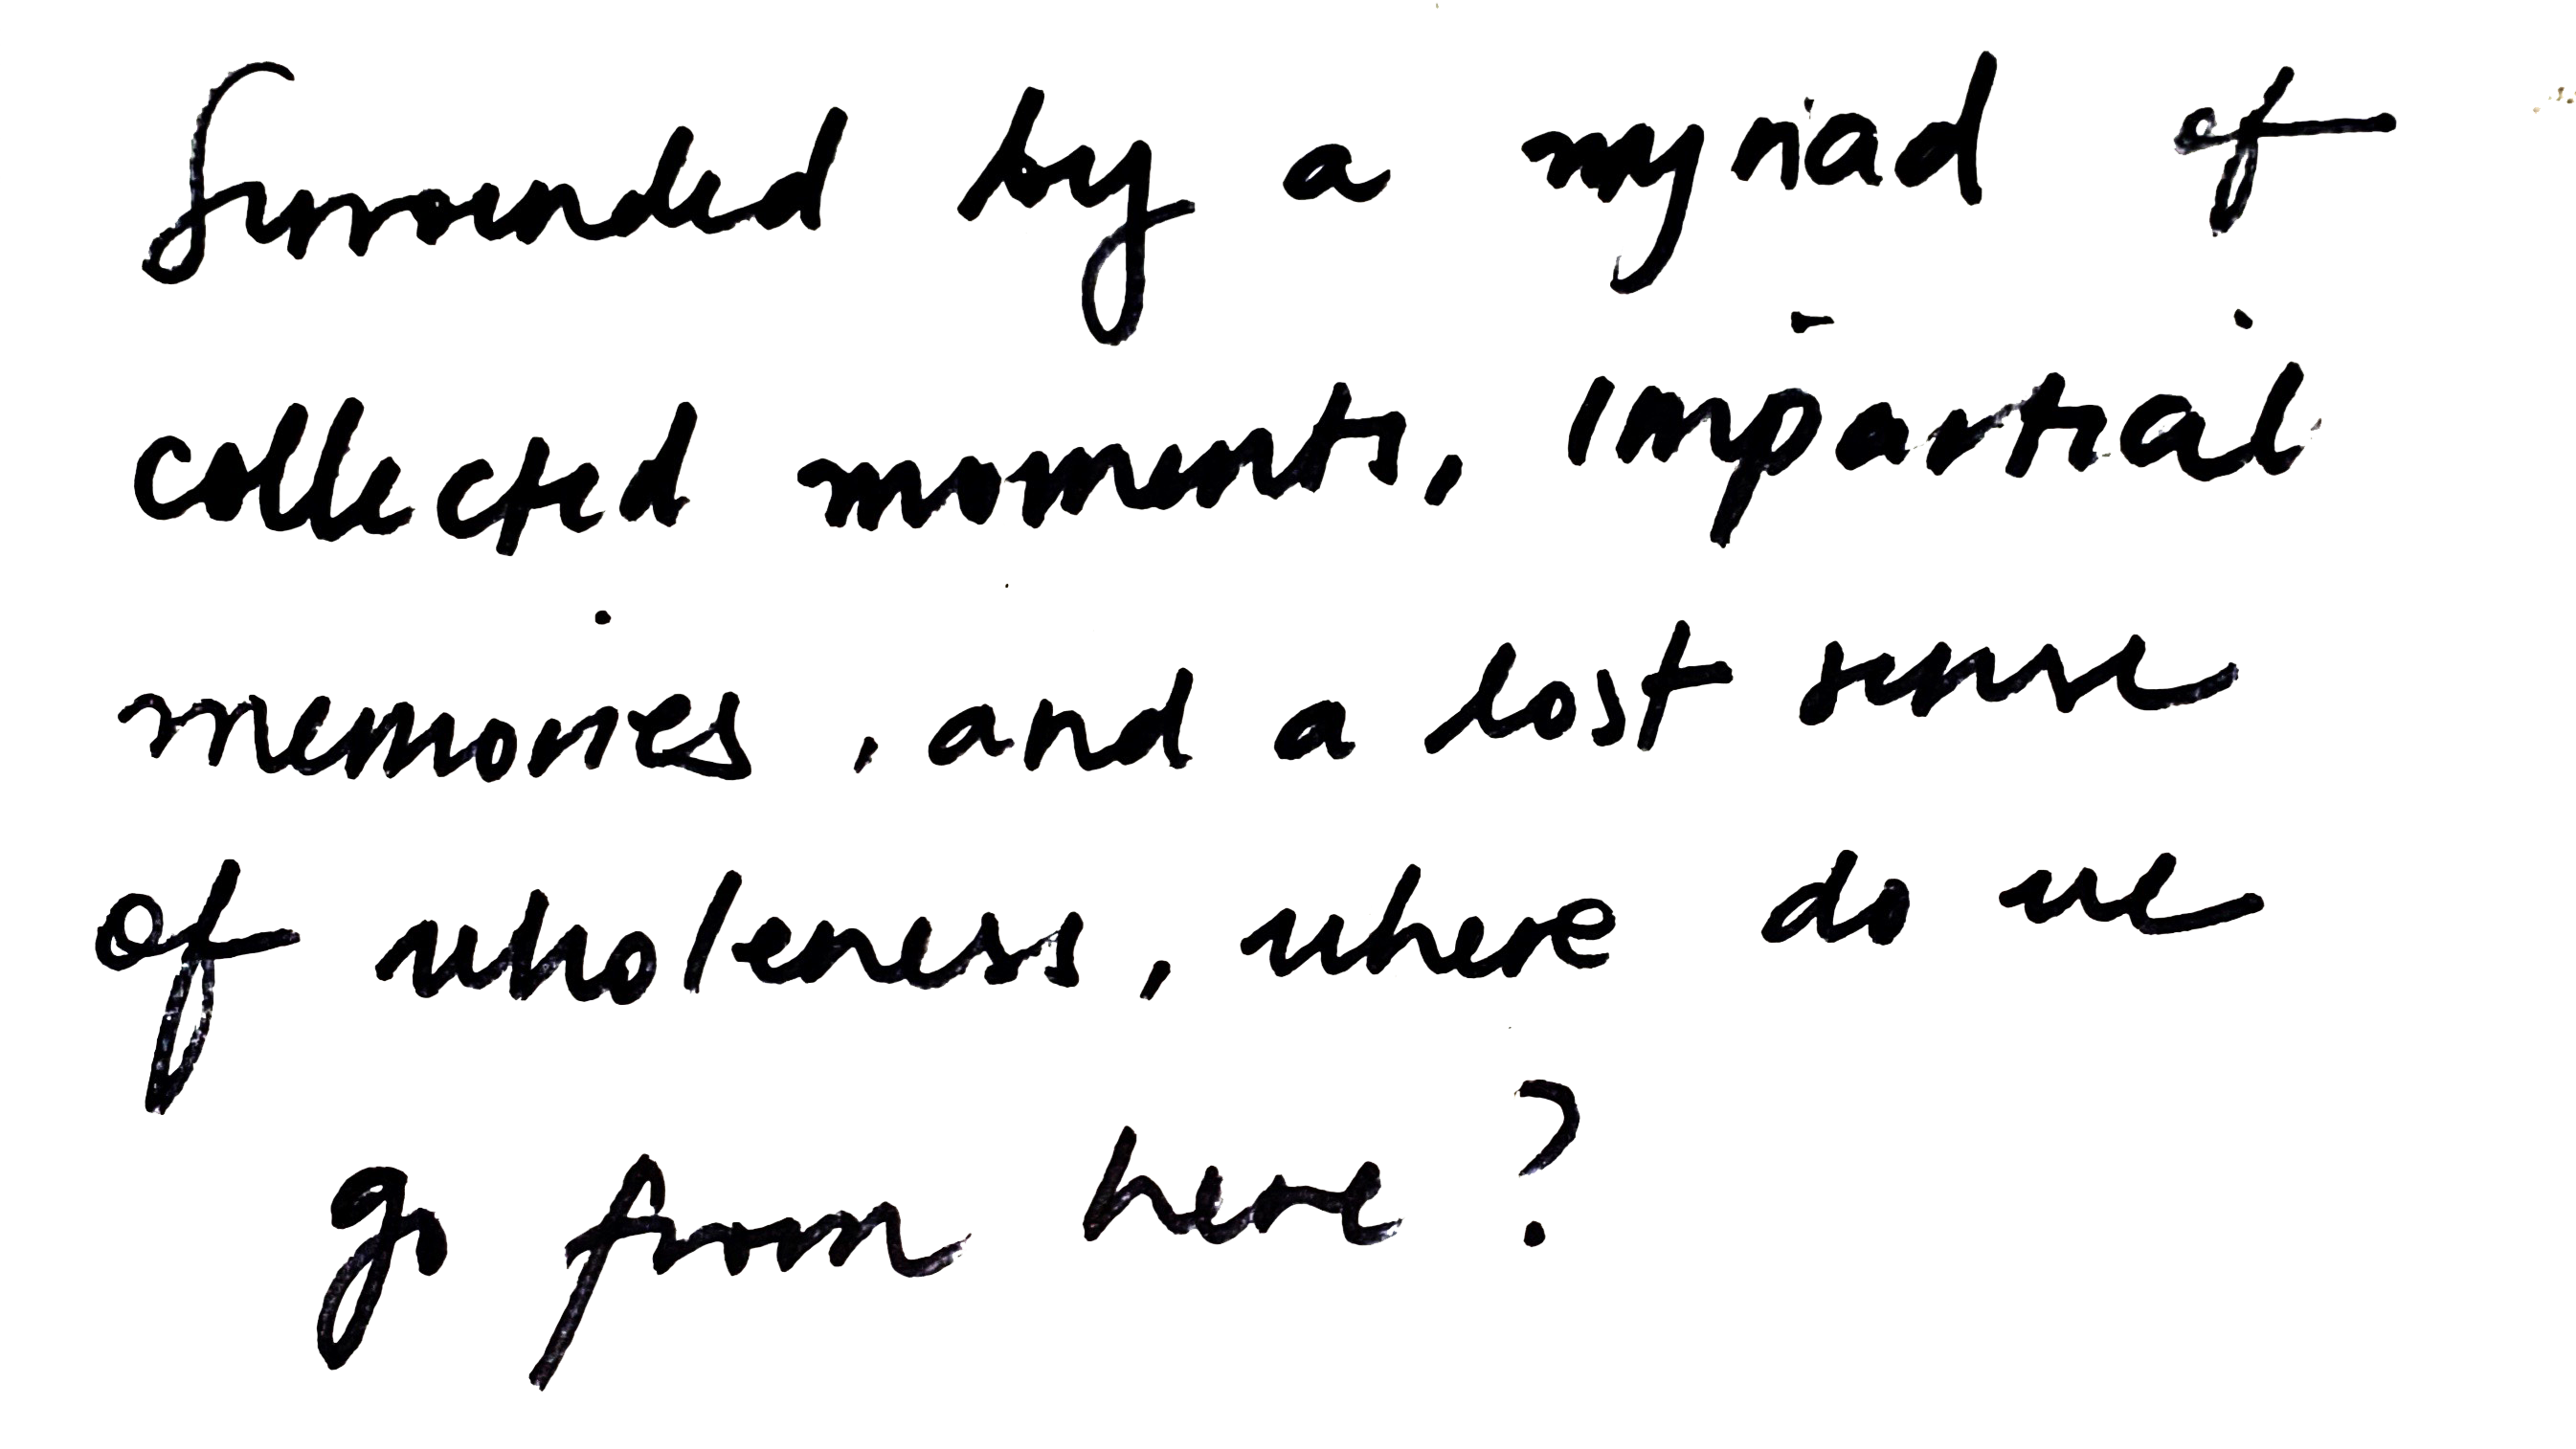 Surrounded by a myriad of
collected moments, impartial
memories, and a lost sense
of wholeness, where do we
go from here?